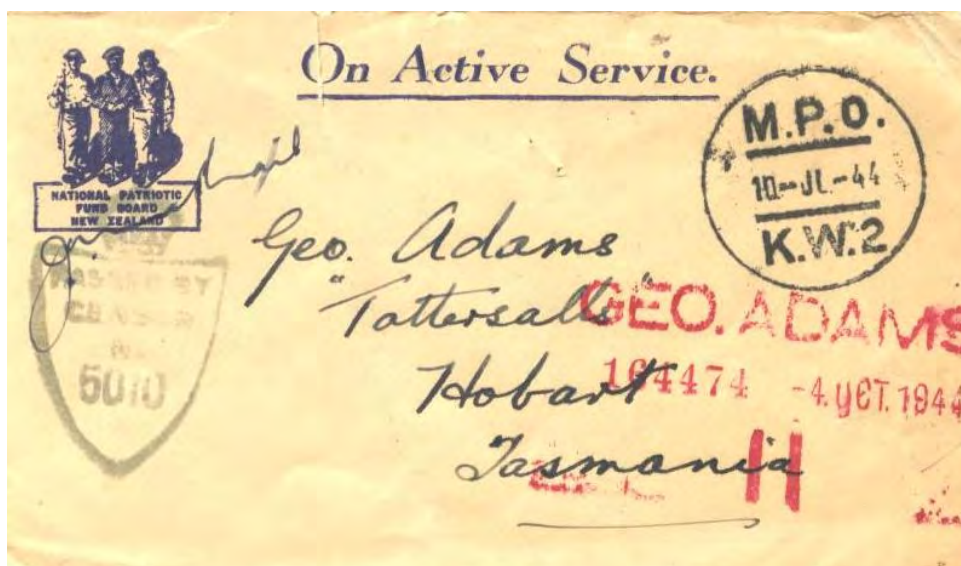 On Active Service.
NATIONAL PATRIOTIC
FUND BOARD
NEW ZEALAND
M.P.O.
10-JL-44
K.W.2
PASSED BY
CENSOR
No.
6010
Geo. Adams
"Tattersalls"
Hobart
Tasmania
GEO. ADAMS
164474 -4. OCT. 1944
H